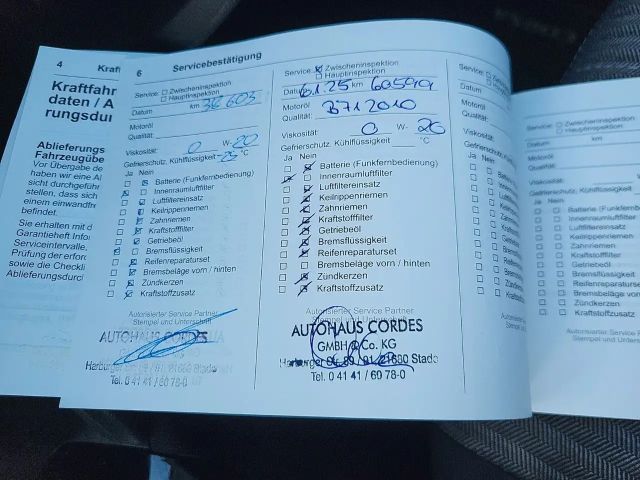 4
Kraft
Kraftfahr
daten / A
rungsdu
Ablieferungs
Fahrzeugübe
Vor Übergabe de
haben wir eine A
sicht durchgeführ
stellen, dass sich
einem einwandfre
befindet.
Sie erhalten mit d
Garantieheft Infor
Serviceintervalle,
Prüfung der erfor
sowie die Checkli
Ablieferungsdurc
6 Servicebestätigung
Service: Zwischeninspektion
Hauptinspektion
Datum km 36603
Motoröl
Qualität:
Viskosität: 0 W-20
Gefrierschutz, Kühlflüssigkeit -25 °C
Ja Nein
Batterie (Funkfernbedienung)
Innenraumluftfilter
Luftfiltereinsatz
Keilrippenriemen
Zahnriemen
Kraftstofffilter
Getriebeöl
Bremsflüssigkeit
Reifenreparaturset
Bremsbeläge vorn / hinten
Zündkerzen
Kraftstoffzusatz
Autorisierter Service Partner
Stempel und Unterschrift
AUTOHAUS CORDES
Harburger Str. 89 / 91, 21680 Stade
Tel. 0 41 41 / 60 78-0
Service: Zwischeninspektion
Hauptinspektion
Datum 1.25 km 60599
Motoröl
Qualität: B71 2010
Viskosität: 0 W- 20
Gefrierschutz, Kühlflüssigkeit °C
Ja Nein
Batterie (Funkfernbedienung)
Innenraumluftfilter
Luftfiltereinsatz
Keilrippenriemen
Zahnriemen
Kraftstofffilter
Getriebeöl
Bremsflüssigkeit
Reifenreparaturset
Bremsbeläge vorn / hinten
Zündkerzen
Kraftstoffzusatz
Autorisierter Service Partner
Stempel und Unterschrift
AUTOHAUS CORDES
GMBH & Co. KG
Harburger Str. 89 / 91, 21680 Stade
Tel. 0 41 41 / 60 78-0
Service: Zwis
Haup
Datum
Motoröl
Qualität:
Viskosität:
Gefrierschutz, Kühl
Ja Nein
Batterie
Innenrau
Luftfilter
Keilrippe
Zahnriem
Kraftstoff
Getriebeö
Bremsflüs
Reifenrep
Bremsbelä
Zündkerze
Kraftstoffz
Autoris
Service: Zwischeninspektion
Hauptinspektion
Datum km
Motoröl
Qualität:
Viskosität: W-
Gefrierschutz, Kühlflüssigkeit
Ja Nein
Batterie (Funkfernbedienung)
Innenraumluftfilter
Luftfiltereinsatz
Keilrippenriemen
Zahnriemen
Kraftstofffilter
Getriebeöl
Bremsflüssigkeit
Reifenreparaturset
Bremsbeläge vorn / hinten
Zündkerzen
Kraftstoffzusatz
Autorisierter Service Partner
Stempel und Unterschrift